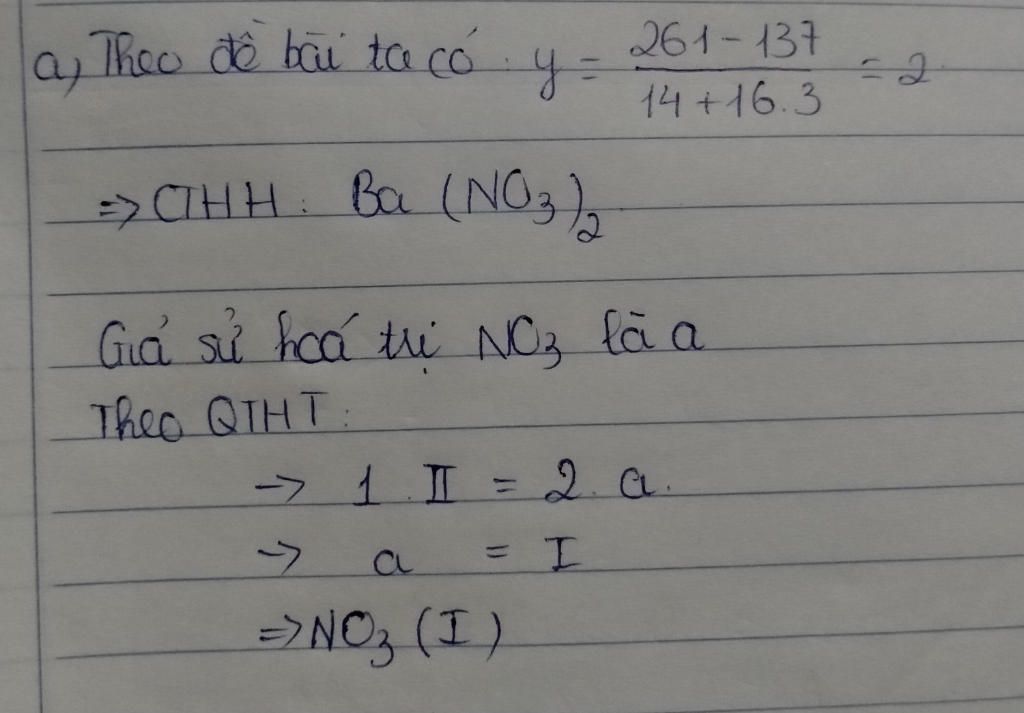 a, Theo đề bài ta có : y = (261 - 137)/(14 + 16.3) = 2
=> CTHH : Ba (NO₃)₂
Giả sử hoá trị NO₃ là a
Theo QTHT :
-> 1 . II = 2 . a.
-> a = I
=> NO₃ (I)